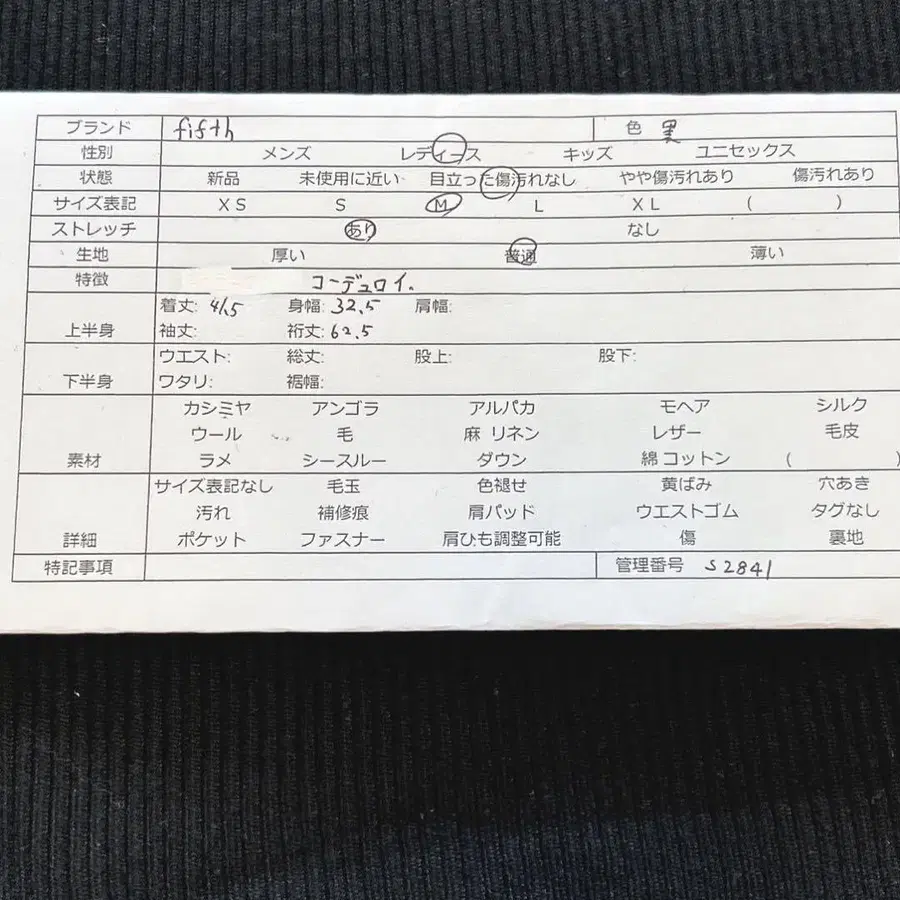 ブランド fifth 色 黒
性別 メンズ レディース キッズ ユニセックス
状態 新品 未使用に近い 目立った傷汚れなし やや傷汚れあり 傷汚れあり
サイズ表記 XS S M L XL ( )
ストレッチ あり なし
生地 厚い 普通 薄い
特徴 コーデュロイ.
着丈: 41.5 身幅: 32.5 肩幅:
上半身 袖丈: 裄丈: 62.5
ウエスト: 総丈: 股上: 股下:
下半身 ワタリ: 裾幅:
カシミヤ アンゴラ アルパカ モヘア シルク
ウール 毛 麻 リネン レザー 毛皮
素材 ラメ シースルー ダウン 綿 コットン ( )
サイズ表記なし 毛玉 色褪せ 黄ばみ 穴あき
汚れ 補修痕 肩パッド ウエストゴム タグなし
詳細 ポケット ファスナー 肩ひも調整可能 傷 裏地
特記事項 管理番号 S2841